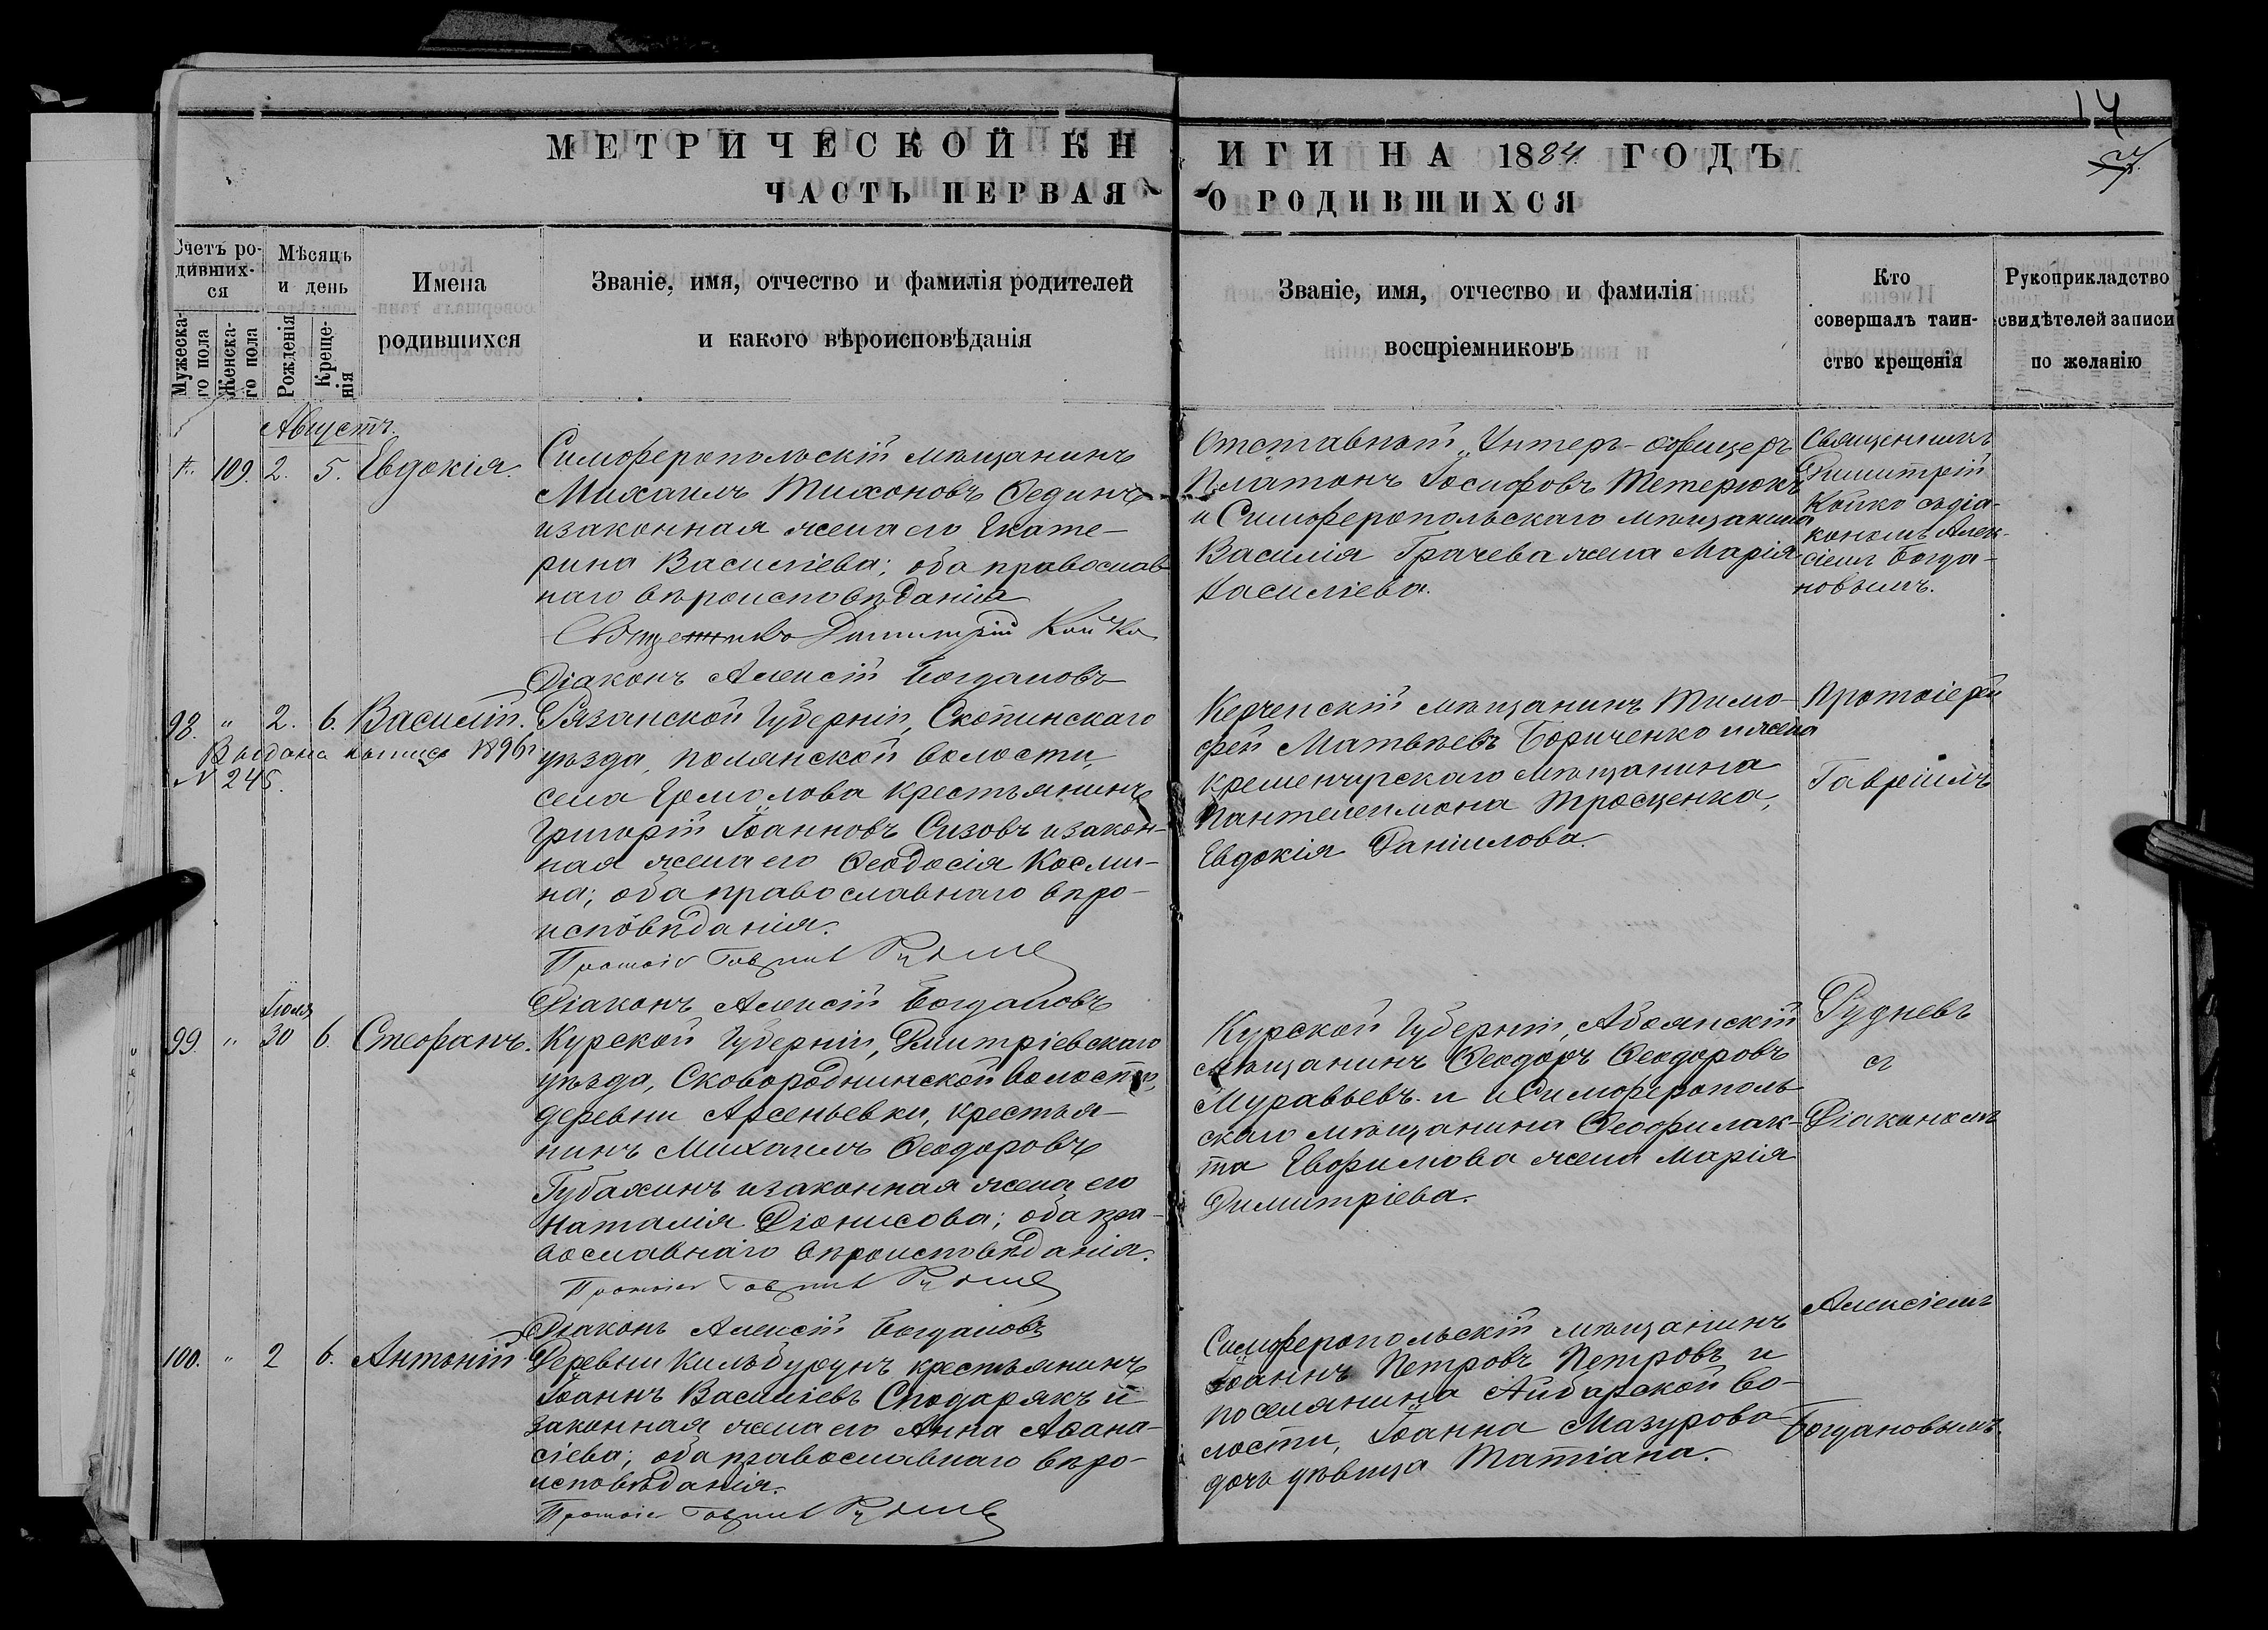 14
МЕТРИЧЕСКОЙ КНИГИ НА 1884 ГОДЪ
ЧАСТЬ ПЕРВАЯ О РОДИВШИХСЯ
Счетъ родившихся
Мужескаго пола
Женскаго пола
Мѣсяцъ и день
Рожденія
Крещенія
Имена родившихся
Званіе, имя, отчество и фамилія родителей
и какого вѣроисповѣданія
Званіе, имя, отчество и фамилія
воспріемниковъ
Кто
совершалъ таин-
ство крещенія
Рукоприкладство
свидѣтелей записи
по желанію
Августъ.
109. 2. 5. Евдокія.
Симферопольскій мѣщанинъ
Михаилъ Тихоновъ Ѳединъ
и законная жена его Екате-
рина Василіева; оба православ
наго вѣроисповѣданія
Священникъ Димитрій Койко
Діаконъ Алексій Богдановъ
Отставной Унтеръ-офицеръ
Платонъ Іосифовъ Тетерюкъ
и Симферопольскаго мѣщанина
Василія Грачева жена Марія
Василіева.
Священникъ
Димитрій
Койко съ діа-
кономъ Алек-
сіемъ Богда-
новымъ.
98. " 2. 6. Василій.
Выдана выпись 1896г
N 245.
Рязанской Губерніи, Скопинскаго
уѣзда, Полянской волости,
села Ермолова крестьянинъ
Григорій Іоанновъ Сизовъ и закон-
ная жена его Ѳеодосія Косми-
на; оба православнаго вѣро-
исповѣданія.
Протоіе Гавріилъ Рудневъ
Діаконъ Алексій Богдановъ
Керченскій мѣщанинъ Тимо-
фей Матвѣевъ Бориченко и жена
Кременчугскаго мѣщанина
Пантелеимона Тросценка,
Евдокія Даніилова.
Протоіерей
Гавріилъ
Іюля
99. " 30 6. Стефанъ.
Курской Губерніи, Дмитріевскаго
уѣзда, Сковороднинской волости,
деревни Арсеньевки, крестья-
нинъ Михаилъ Ѳеодоровъ
Губахинъ и законная жена его
Наталія Діонисова; оба пра-
вославнаго вѣроисповѣданія.
Протоіе Гавріилъ Рудневъ
Діаконъ Алексій Богдановъ
Курской Губерніи, Абоянскій
мѣщанинъ Ѳеодоръ Ѳеодоровъ
Муравьевъ. и и Симферополь-
скаго мѣщанина Ѳеофилак-
та Евфимова жена Марія
Димитріева.
Рудневъ
съ
Діакономъ
100. " 2 6. Антоній
Деревни Кильбурунъ крестьянинъ
Іоаннъ Василіевъ Сподарякъ и
законная жена его Анна Аѳана-
сіева; оба православнаго вѣро-
исповѣданія.
Протоіе Гавріилъ Рудневъ
Симферопольскій мѣщанинъ
Іоаннъ Петровъ Петровъ и
поселянина Айбарской во-
лости, Іоанна Мазурова
дочь дѣвица Татіана.
Алексіемъ
Богдановымъ.